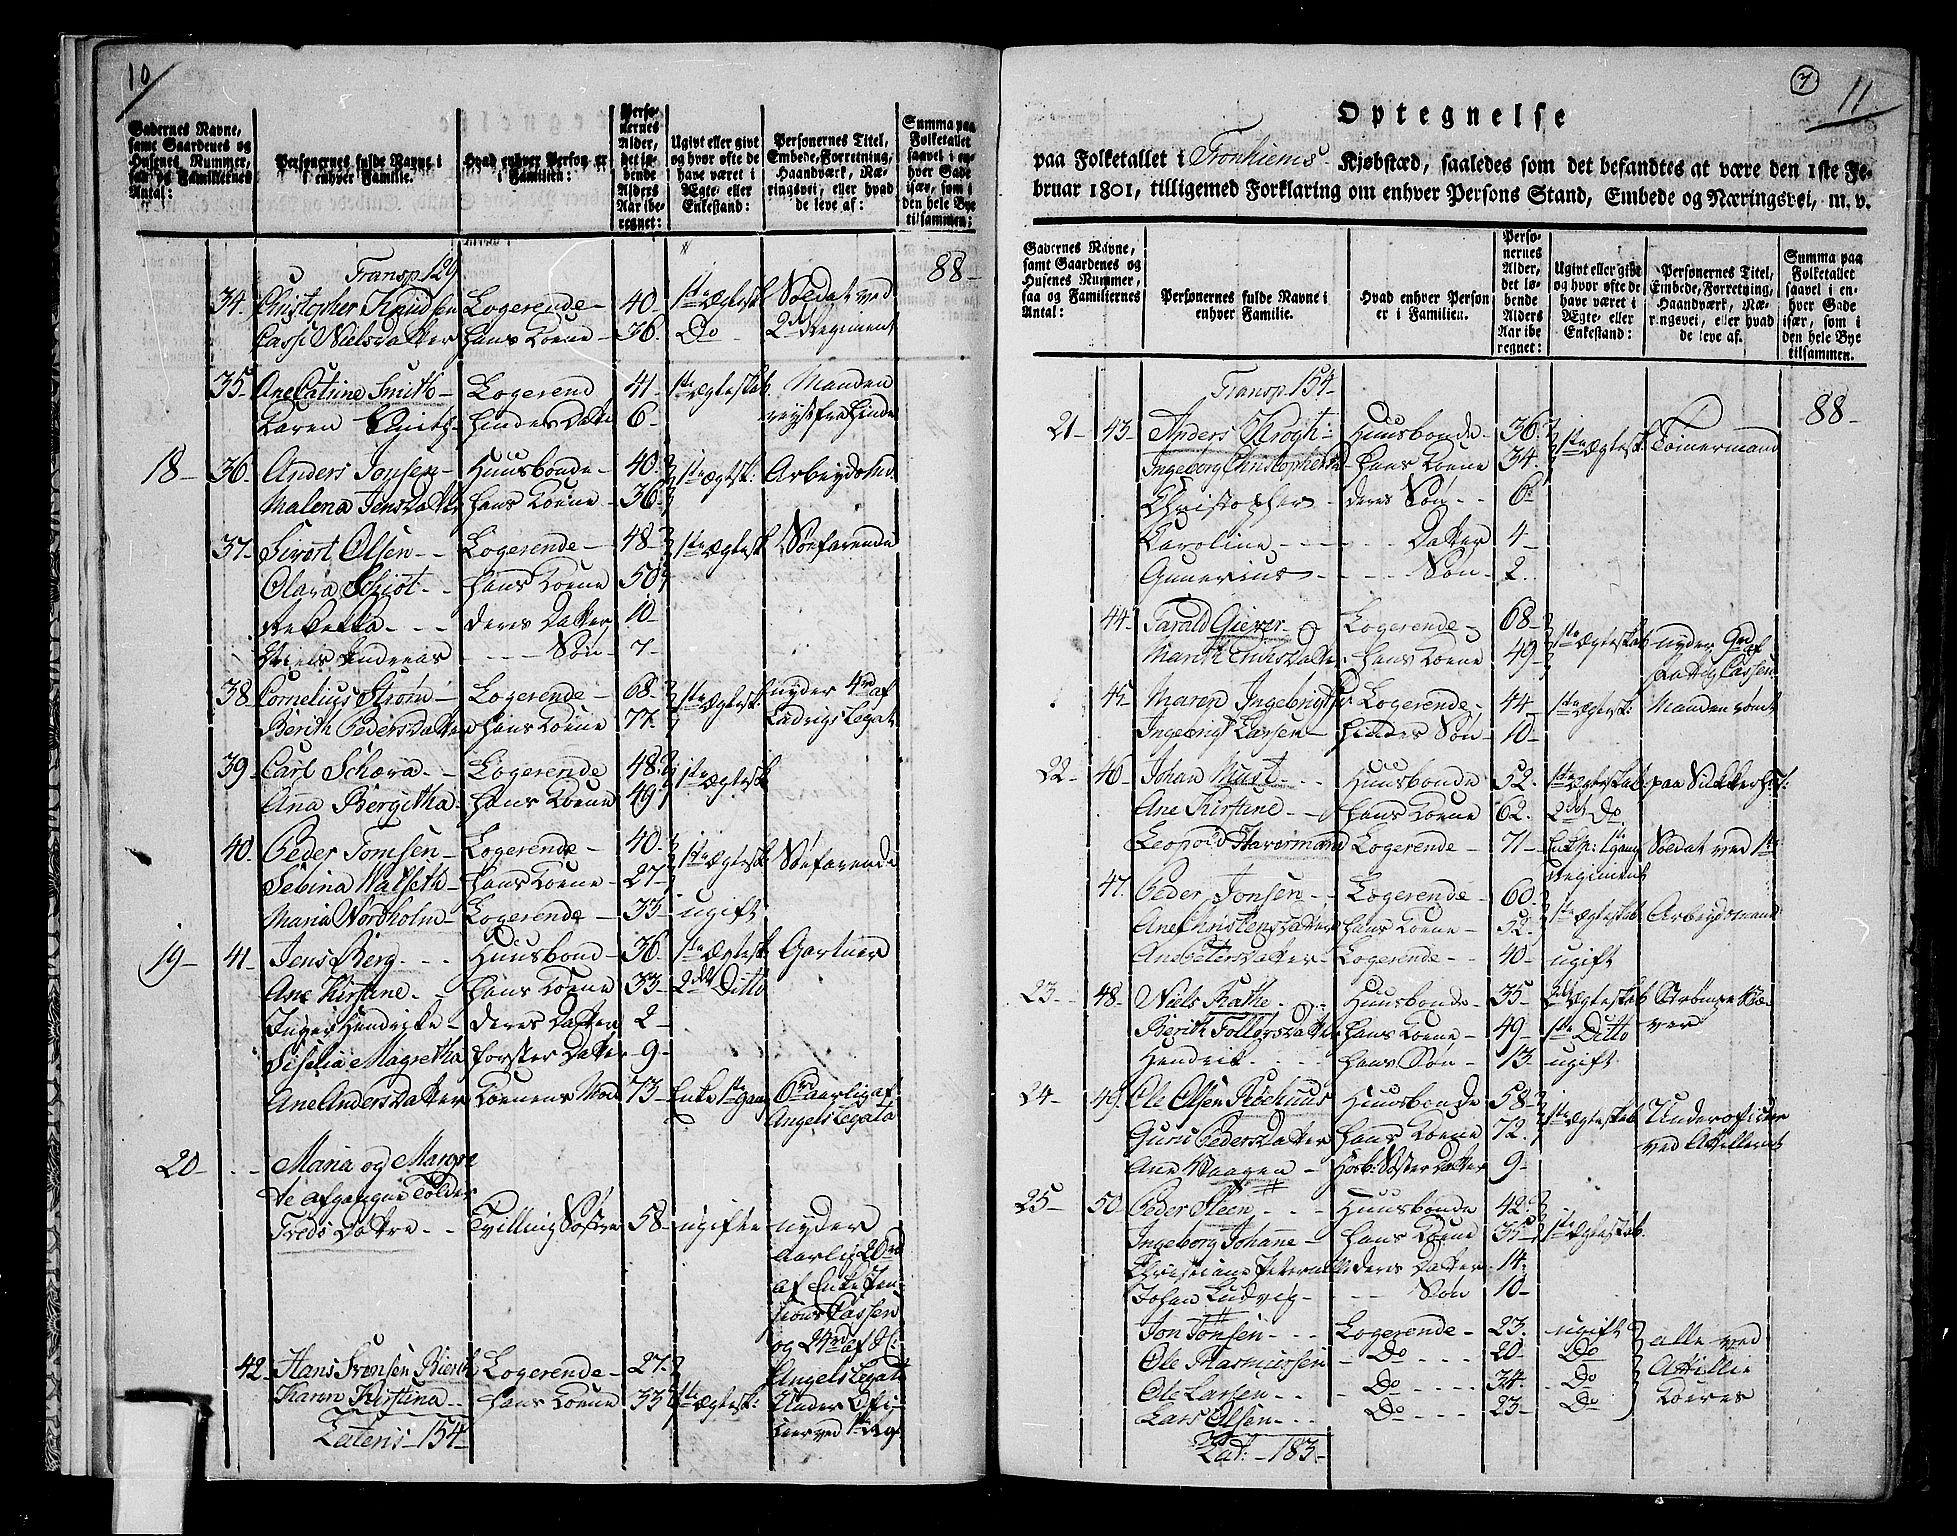 10
Gadernes Navne, samt Gaardenes og Husenes Nummer, saa og Familiernes Antal:
Personernes fulde Navne i enhver Familie.
Hvad enhver Person er i Familien:
Personernes Alder, det løbende Alders Aar iberegnet:
Ugivt eller givt og hvor ofte de have været i Ægte- eller Enkestand:
Personernes Titel, Embede, Forretning, Haandværk, Næringsvei, eller hvad de leve af:
Summa paa Folketallet saavel i enhver Gade især, som i den hele Bye tilsammen:
Transp. 129 88-
34. Christopher Knudsen Logerende 40. 1ste Ægtesk. Soldat ved
Nielsdatter hans Koene 36. Do 2det Regiment
35 Ane Catrine Smith Logerend 41 1ste Ægteskab Manden
Karen hindes Datter 6 reyst fra hinde
18 36 Anders Jonsen Huusbonde 40 1ste Ægtesk: Arbeydsmd.
Malena Jensdatter hans Koene 36
37 Sivert Olsen Logerende 48 1ste Ægtesk Søefarende
Clara hans Koene 50
Rebekka deres Datter 10
Niels Andreas Søn 7
38 Cornelius Strøm Logerende 68 1ste Ægtesk: nyder 4rd af
Berith Pedersdatter hans Koene 77 Legat
39 Carl Schæra Logerende 48 1ste Ægtesk
Anna Bergitha hans Koene 49
40 Peder Tomsen Logerende 40 1ste Ægtesk Søefarende
Sebina Walseth hans Koene 27
Maria Nordholm Logerende 33 ugift
19 41 Jens Berg Huusbond 36 1ste Ægtesk Gartner
Ane Kirstine hans Koene 33 2det Ditto
Inger Hendrikke deres Datter 2
Siselia Magretha forster Datter 9
Ane Andersdatter Koenens Mod. 73 Enke 1ste gang 6rd aarlig af
Angels Legata
20 Maria og Margre
te afgangne Tolder
Datre Tvilling Søstre 58 ugifte nyder
aarlig 20rd
af Enke Pen-
sions Cassen
og 24rd af
42 Hans Svensen Logerende 27 Angels Legat
Karen Kirstina hans Koene 33 1ste Ægtesk: Under Offi-
cier ved 1ste Reg
Lateris 154
7 11
Optegnelse
paa Folketallet i Tronhiems Kjøbstæd, saaledes som det befandtes at være den 1ste Fe-
bruar 1801, tilligemed Forklaring om enhver Persons Stand, Embede og Næringsvei, m. v.
Gadernes Navne, samt Gaardenes og Husenes Nummer, saa og Familiernes Antal:
Personernes fulde Navne i enhver Familie.
Hvad enhver Person er i Familien.
Personernes Alder, det løbende Alders Aar iberegnet:
Ugivt eller givt og hvor ofte de have været i Ægte- eller Enkestand:
Personernes Titel, Embede, Forretning, Haandværk, Næringsvei, eller hvad de leve af.
Summa paa Folketallet saavel i enhver Gade især, som i den hele Bye tilsammen.
Transp. 154 88-
21 43 Anders Krogh Huusbonde 36 1ste Ægtesk Tømermand
Ingeborg hans Koene 34
Christopher deres Søn 6
Karoline Datter 4
Gunerius Søn 2
44 Tarald Giever Logerende 68 1ste Ægteskab nyder af
Marith hans Koene 49 Cassen
45 Maren Logerende 44 1ste Ægtesk: Manden rømt
Ingebrigt Larsen hindes Søn 10
22 46 Johan Must Huusbonde 52 1ste Ægteskab paa Sukkerh:
Ane Kirstine hans Koene 62 2det Do
Leopold Havermand Logerende 71 1 gang Soldat ved 1ste
Regiment
47 Peder Jonsen Logerende 60 1ste Ægteskab Arbeydsmand
Ane Christensdatter hans Koene 52
Ane Petersdatter Logerende 40 ugift
23 48 Niels Rathe Huusbonde 35 2det Ægteskab Strømpe Væ-
Berith hans Koene 49 1ste Ditto ver
Hendrik hans Søn 13 ugift
24 49 Ole Olsen Huusbonde 58 1ste Ægteskab Underofficier
Guru Pedersdatter hans Koene 72 ved Artilleriet
Ane Waagen Søster Datter 9
25 50 Peder Steen Huusbonde 42 1ste Ægteskab
Ingeborg Johane hans Koene 35
Christiane deres Datter 14
Johan Ludvig Søn 10
Jon Jonsen Logerende 23 ugift alle ved
Ole Rasmussen Do 20 Do
Ole Larsen Do 34 Do
Lars Olsen Do 23 Do
Lat: 183